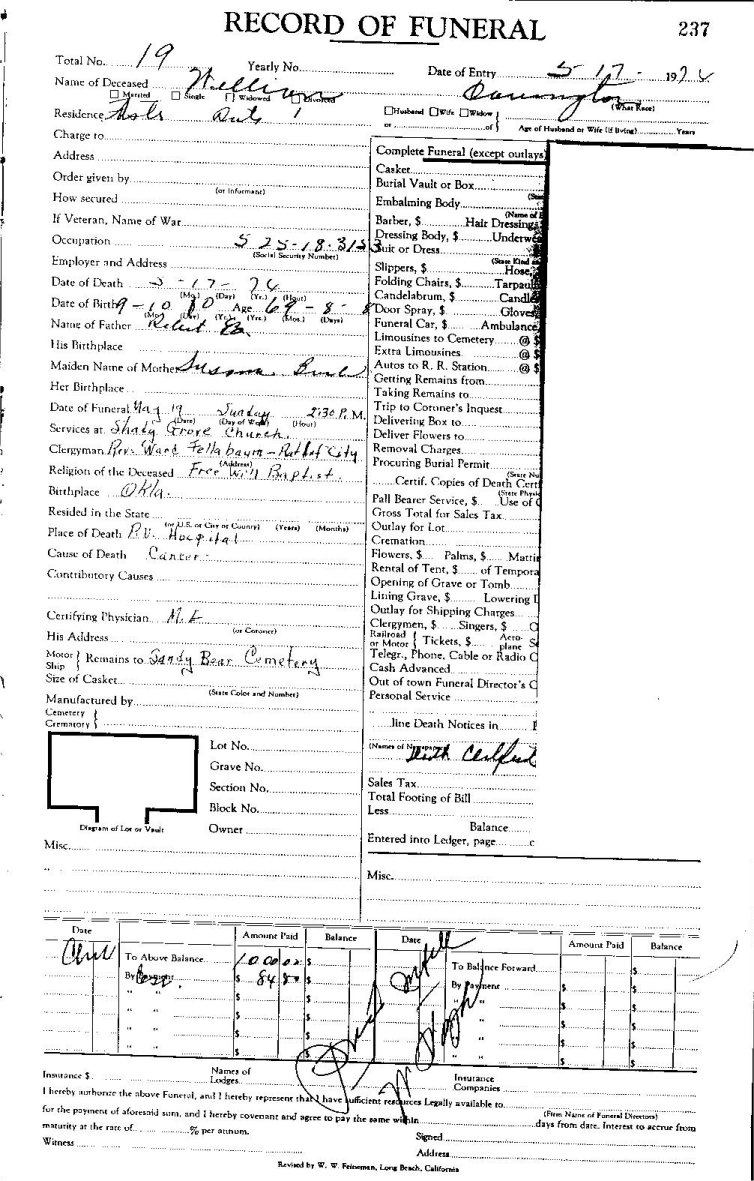 RECORD OF FUNERAL
237
Total No. 19 Yearly No. Date of Entry 5-17- 197
Name of Deceased William
Married Single Widowed Divorced (What Race)
Residence Husband Wife Widow
or of Age of Husband or Wife (if living) Years
Charge to
Address
Order given by
(or Informant)
How secured
If Veteran, Name of War
Occupation
(Social Security Number)
Employer and Address
Date of Death 5-17-74
(Mo.) (Day) (Yr.) (Hour)
Date of Birth 9-10 Age 69-8-8
(Mo.) (Day) (Yr.) (Yrs.) (Mos.) (Days)
Name of Father
His Birthplace
Maiden Name of Mother
Her Birthplace
Date of Funeral May 19 Sunday 2:30 P.M.
(Date) (Day of Week) (Hour)
Services at Shady Grove Church.
Clergyman Rev. Ward Fellabaum - City
(Address)
Religion of the Deceased Free Will Baptist.
Birthplace Okla.
Resided in the State
(or U.S. or City or County) (Years) (Months)
Place of Death P.V. Hospital
Cause of Death Cancer
Contributory Causes
Certifying Physician M.E
(or Coroner)
His Address
Motor Ship } Remains to Sandy Bear Cemetery
Size of Casket
(State Color and Number)
Manufactured by
Cemetery
Crematory
Lot No.
Grave No.
Section No.
Block No.
Diagram of Lot or Vault Owner
Misc.
Complete Funeral (except outlays)
Casket
Burial Vault or Box
Embalming Body
Barber, $ Hair Dressing
Dressing Body, $ Underwe
Suit or Dress
Slippers, $ Hose,
Folding Chairs, $ Tarpaul
Candelabrum, $ Candle
Door Spray, $ Gloves
Funeral Car, $ Ambulance
Limousines to Cemetery @ $
Extra Limousines @ $
Autos to R. R. Station @ $
Getting Remains from
Taking Remains to
Trip to Coroner's Inquest
Delivering Box to
Deliver Flowers to
Removal Charges
Procuring Burial Permit
(State Nu
Certif. Copies of Death Certi
(State Physi
Pall Bearer Service, $ Use of
Gross Total for Sales Tax
Outlay for Lot
Cremation
Flowers, $ Palms, $ Mattin
Rental of Tent, $ of Tempora
Opening of Grave or Tomb
Lining Grave, $ Lowering
Outlay for Shipping Charges
Clergymen, $ Singers, $
Railroad or Motor { Tickets, $ Aeroplane
Telegr., Phone, Cable or Radio
Cash Advanced
Out of town Funeral Director's
Personal Service
line Death Notices in
(Names of Newspapers)
Death
Sales Tax
Total Footing of Bill
Less
Balance
Entered into Ledger, page
Misc.
Date Amount Paid Balance Date Amount Paid Balance
To Above Balance 1000 00 $ To Balance Forward $
By Payment $ $ By Payment $ $
Insurance $ Names of Lodges Insurance Companies
I hereby authorize the above Funeral, and I hereby represent that I have sufficient resources Legally available to
(Firm Name of Funeral Directors)
for the payment of aforesaid sum, and I hereby covenant and agree to pay the same within days from date. Interest to accrue from
maturity at the rate of % per annum. Signed
Witness Address
Revised by W. W. Feineman, Long Beach, California